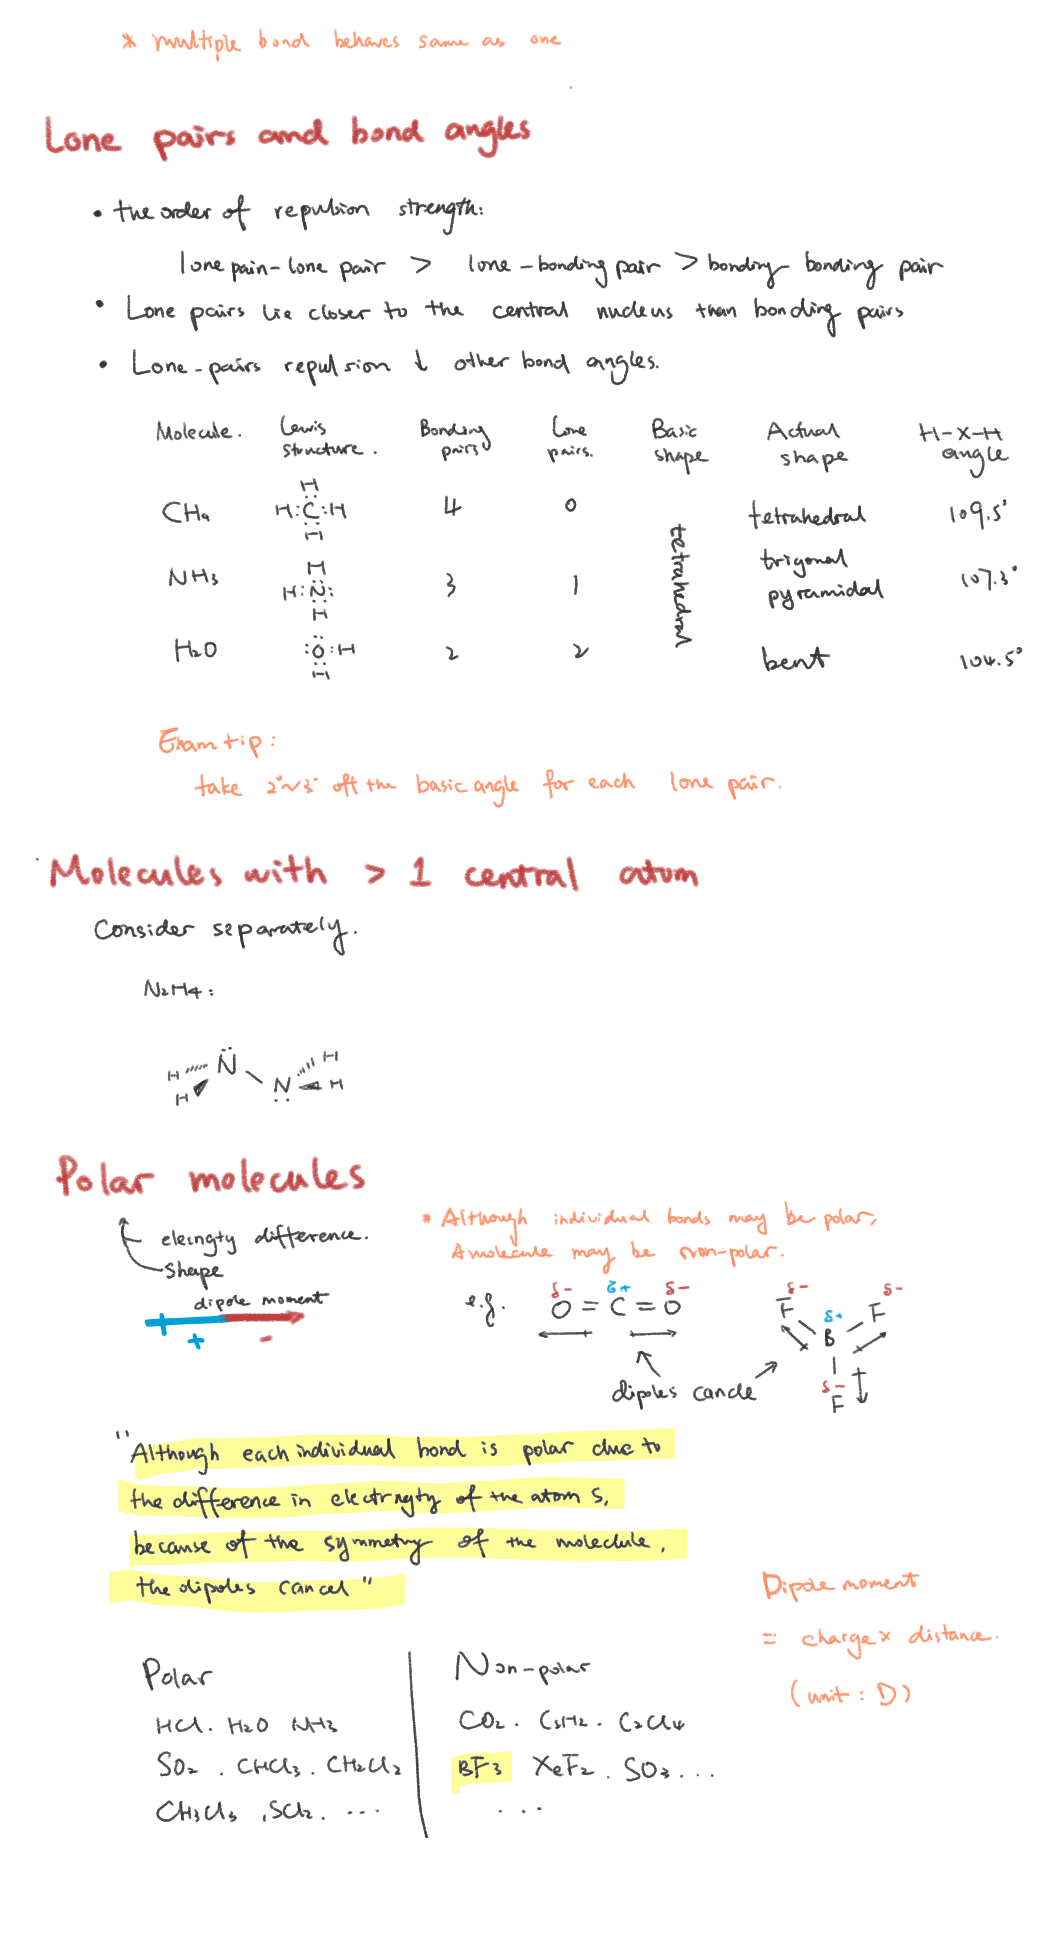 * multiple bond behaves same as one
Lone pairs and bond angles
• the order of repulsion strength:
lone pain-lone pair > lone-bonding pair > bonding-bonding pair
• Lone pairs lie closer to the central nucleus than bonding pairs
• Lone-pairs repulsion ↓ other bond angles.
Molecule. Lewis structure. Bonding pairs Lone pairs. Basic shape Actual shape H-X-H angle
CH4 H H:C:H H 4 0 tetrahedral tetrahedral 109.5°
NH3 H H:N: H 3 1 trigonal pyramidal 107.3°
H2O :O:H H 2 2 bent 104.5°
Exam tip:
take 2°~3° off the basic angle for each lone pair.
Molecules with > 1 central atom
Consider separately.
N2H4:
H N H
H N H
Polar molecules
elecngty difference.
shape
dipole moment
+ -
* Although individual bonds may be polar,
A molecule may be non-polar.
e.g. δ- δ+ δ-
O=C=O
δ- δ-
F δ+ F
B
δ-
F
dipoles cancle
"Although each individual bond is polar due to
the difference in electrngty of the atoms,
because of the symmetry of the moleclule,
the dipoles cancel"
Dipole moment
= charge x distance.
(unit: D)
Polar Non-polar
HCl. H2O NH3 CO2. C5H2. C2Cl4
SO2. CHCl3. CH2Cl2 BF3 XeF2. SO3...
CH3Cl3, SCl2. ... ...